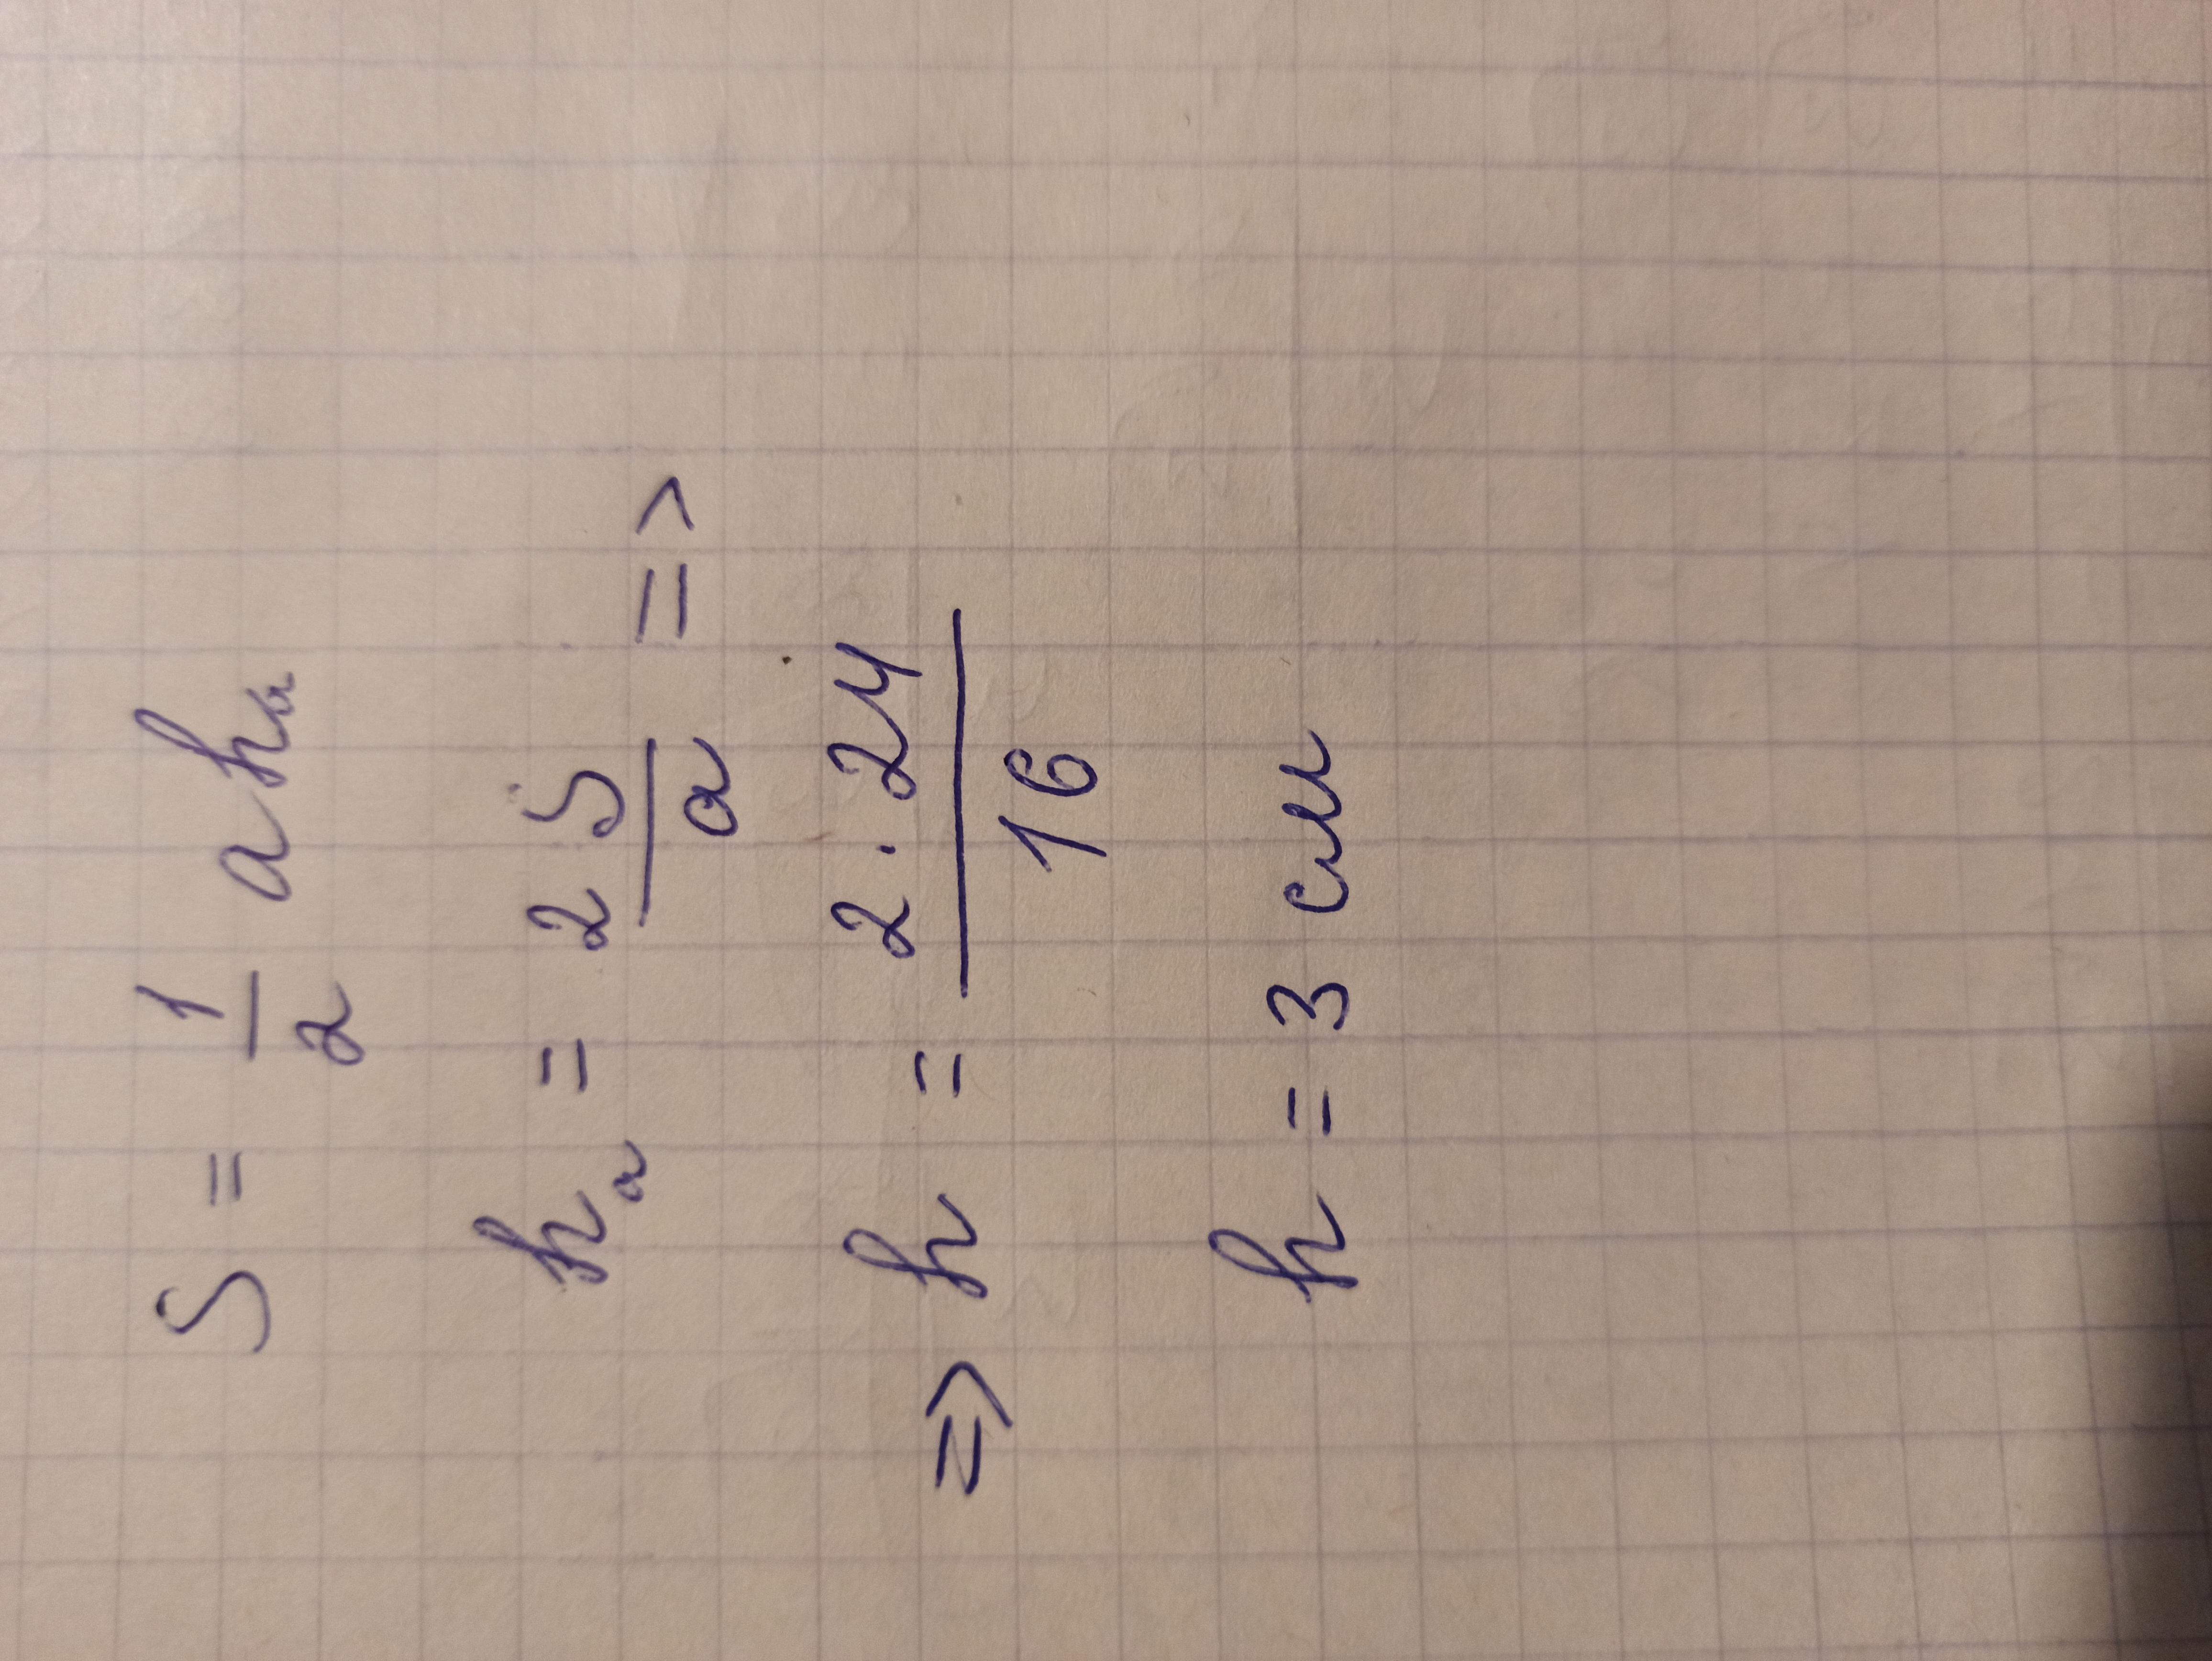 S = 1/2 ah_a
h_a = 2S/a =>
=> h = 2·24/16
h = 3 см